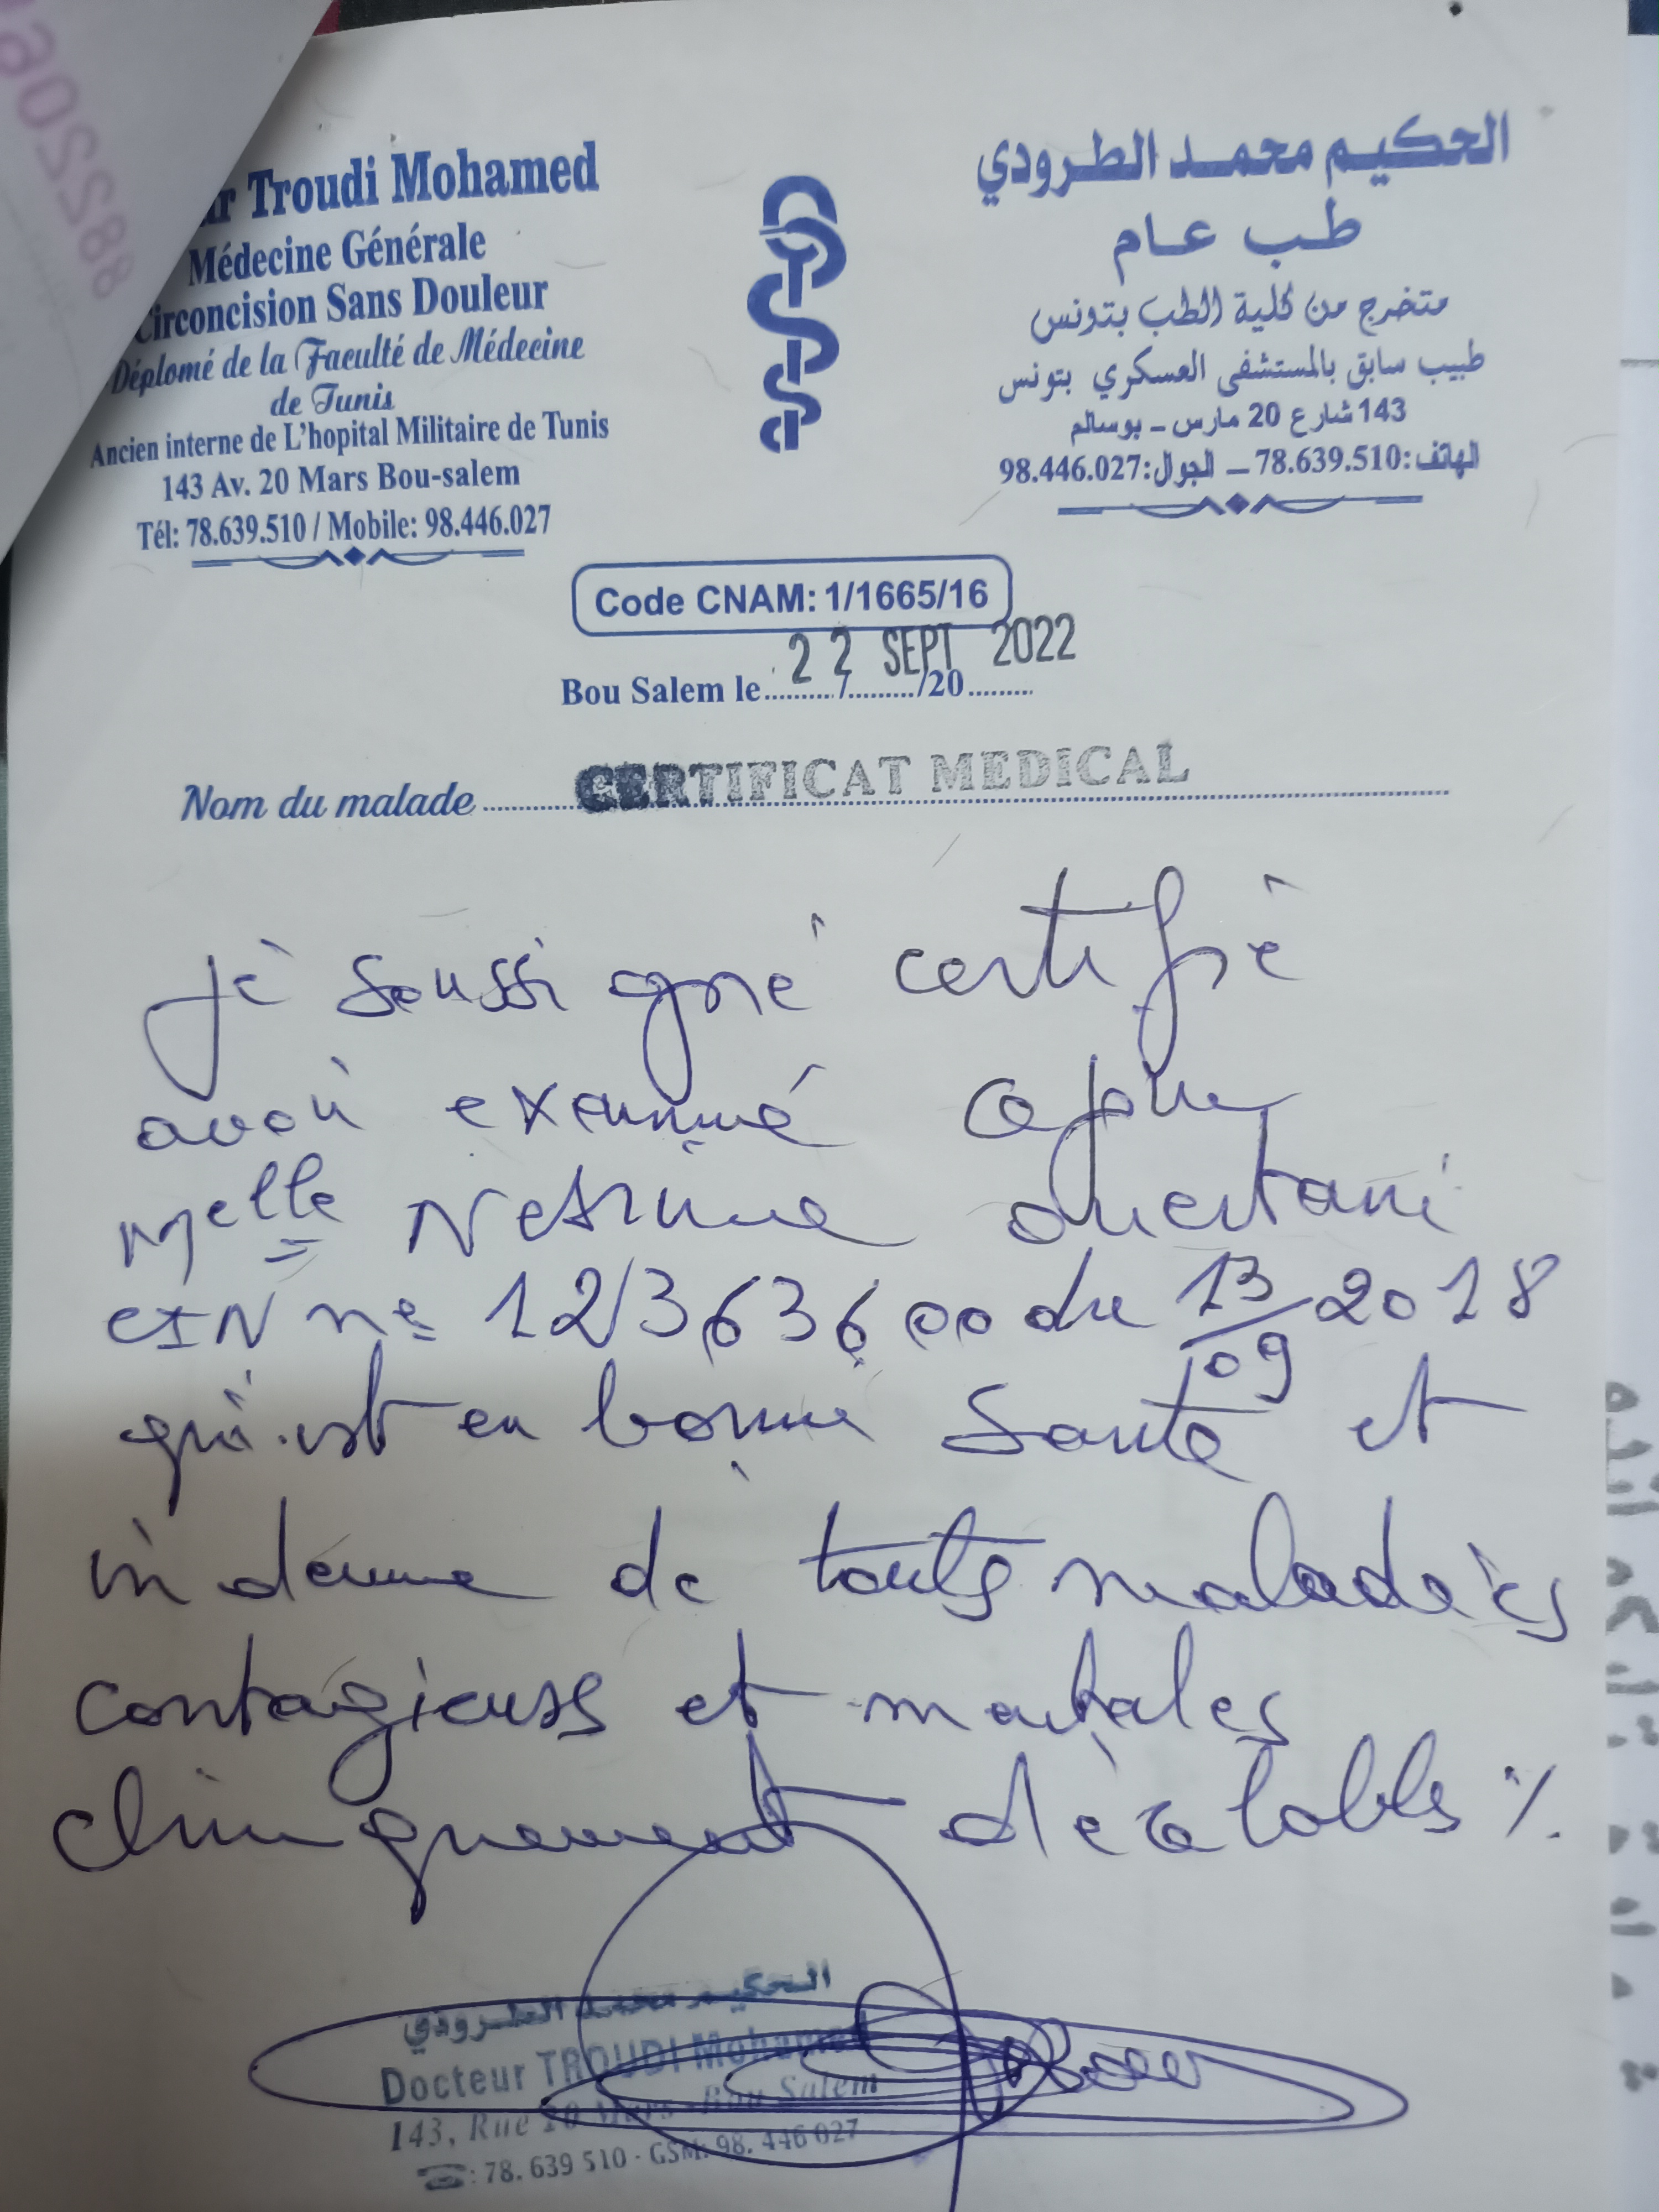 r Troudi Mohamed
Médecine Générale
Circoncision Sans Douleur
Déplomé de la Faculté de Médecine
de Tunis
Ancien interne de L'hopital Militaire de Tunis
143 Av. 20 Mars Bou-salem
Tél: 78.639.510 / Mobile: 98.446.027
الحكيم محمد الطرودي
طب عام
متخرج من كلية الطب بتونس
طبيب سابق بالمستشفى العسكري بتونس
143 شارع 20 مارس - بوسالم
الهاتف:78.639.510 - الجوال:98.446.027
Code CNAM: 1/1665/16
Bou Salem le 22 SEPT 2022
......../......../20.........
Nom du malade CERTIFICAT MEDICAL
Je soussigné certifie
avoir examiné
Melle Nesrine Ouertani
CIN n° 12363600 du 13/09 2018
qui est en bonne santé et
indemne de toutes maladies
contagieuses et
cliniquement décelables %
الحكيم محمد الطرودي
Docteur TROUDI Mohamed
143, Rue 20 Mars - Bou Salem
☎: 78. 639 510 - GSM: 98. 446 027